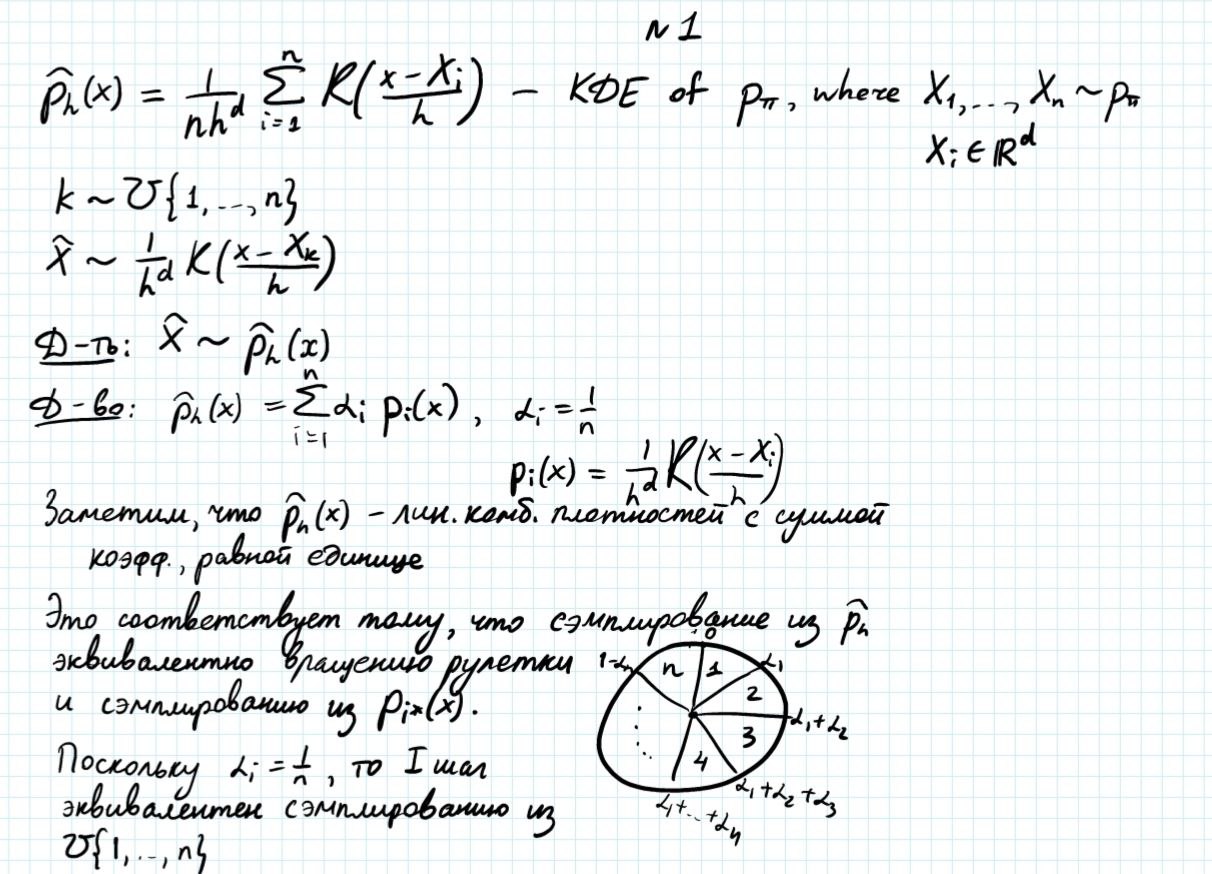 №1
p̂ₕ(x) = 1/(nhᵈ) ∑ᵢ₌₁ⁿ K((x − Xᵢ)/h) – КДЕ of p_π, where X₁, ..., Xₙ ~ p_π
Xᵢ ∈ ℝᵈ
k ~ U{1, ..., n}
X̂ ~ 1/hᵈ K((x − X_k)/h)
Д-ть: X̂ ~ p̂ₕ(x)
Д-во: p̂ₕ(x) = ∑ᵢ₌₁ⁿ αᵢ pᵢ(x), αᵢ = 1/n
pᵢ(x) = 1/hᵈ K((x − Xᵢ)/h)
Заметим, что p̂ₕ(x) – лин. комб. плотностей с суммой
коэфф., равной единице
Это соответствует тому, что сэмплирование из p̂ₕ
эквивалентно вращению рулетки
и сэмплированию из pᵢ*(x).
Поскольку αᵢ = 1/n, то I шаг
эквивалентен сэмплированию из
U{1, .., n}
0
1-αₙ n 1 α₁
2
α₁+α₂
3
4
α₁+α₂+α₃
α₁+...+α₄